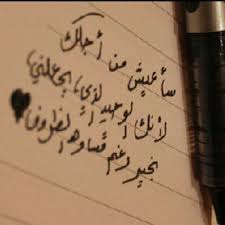 سأعيش من أجلك
لأنك الوحيد الذي يجعلني
بخير رغم قساوة الظروف